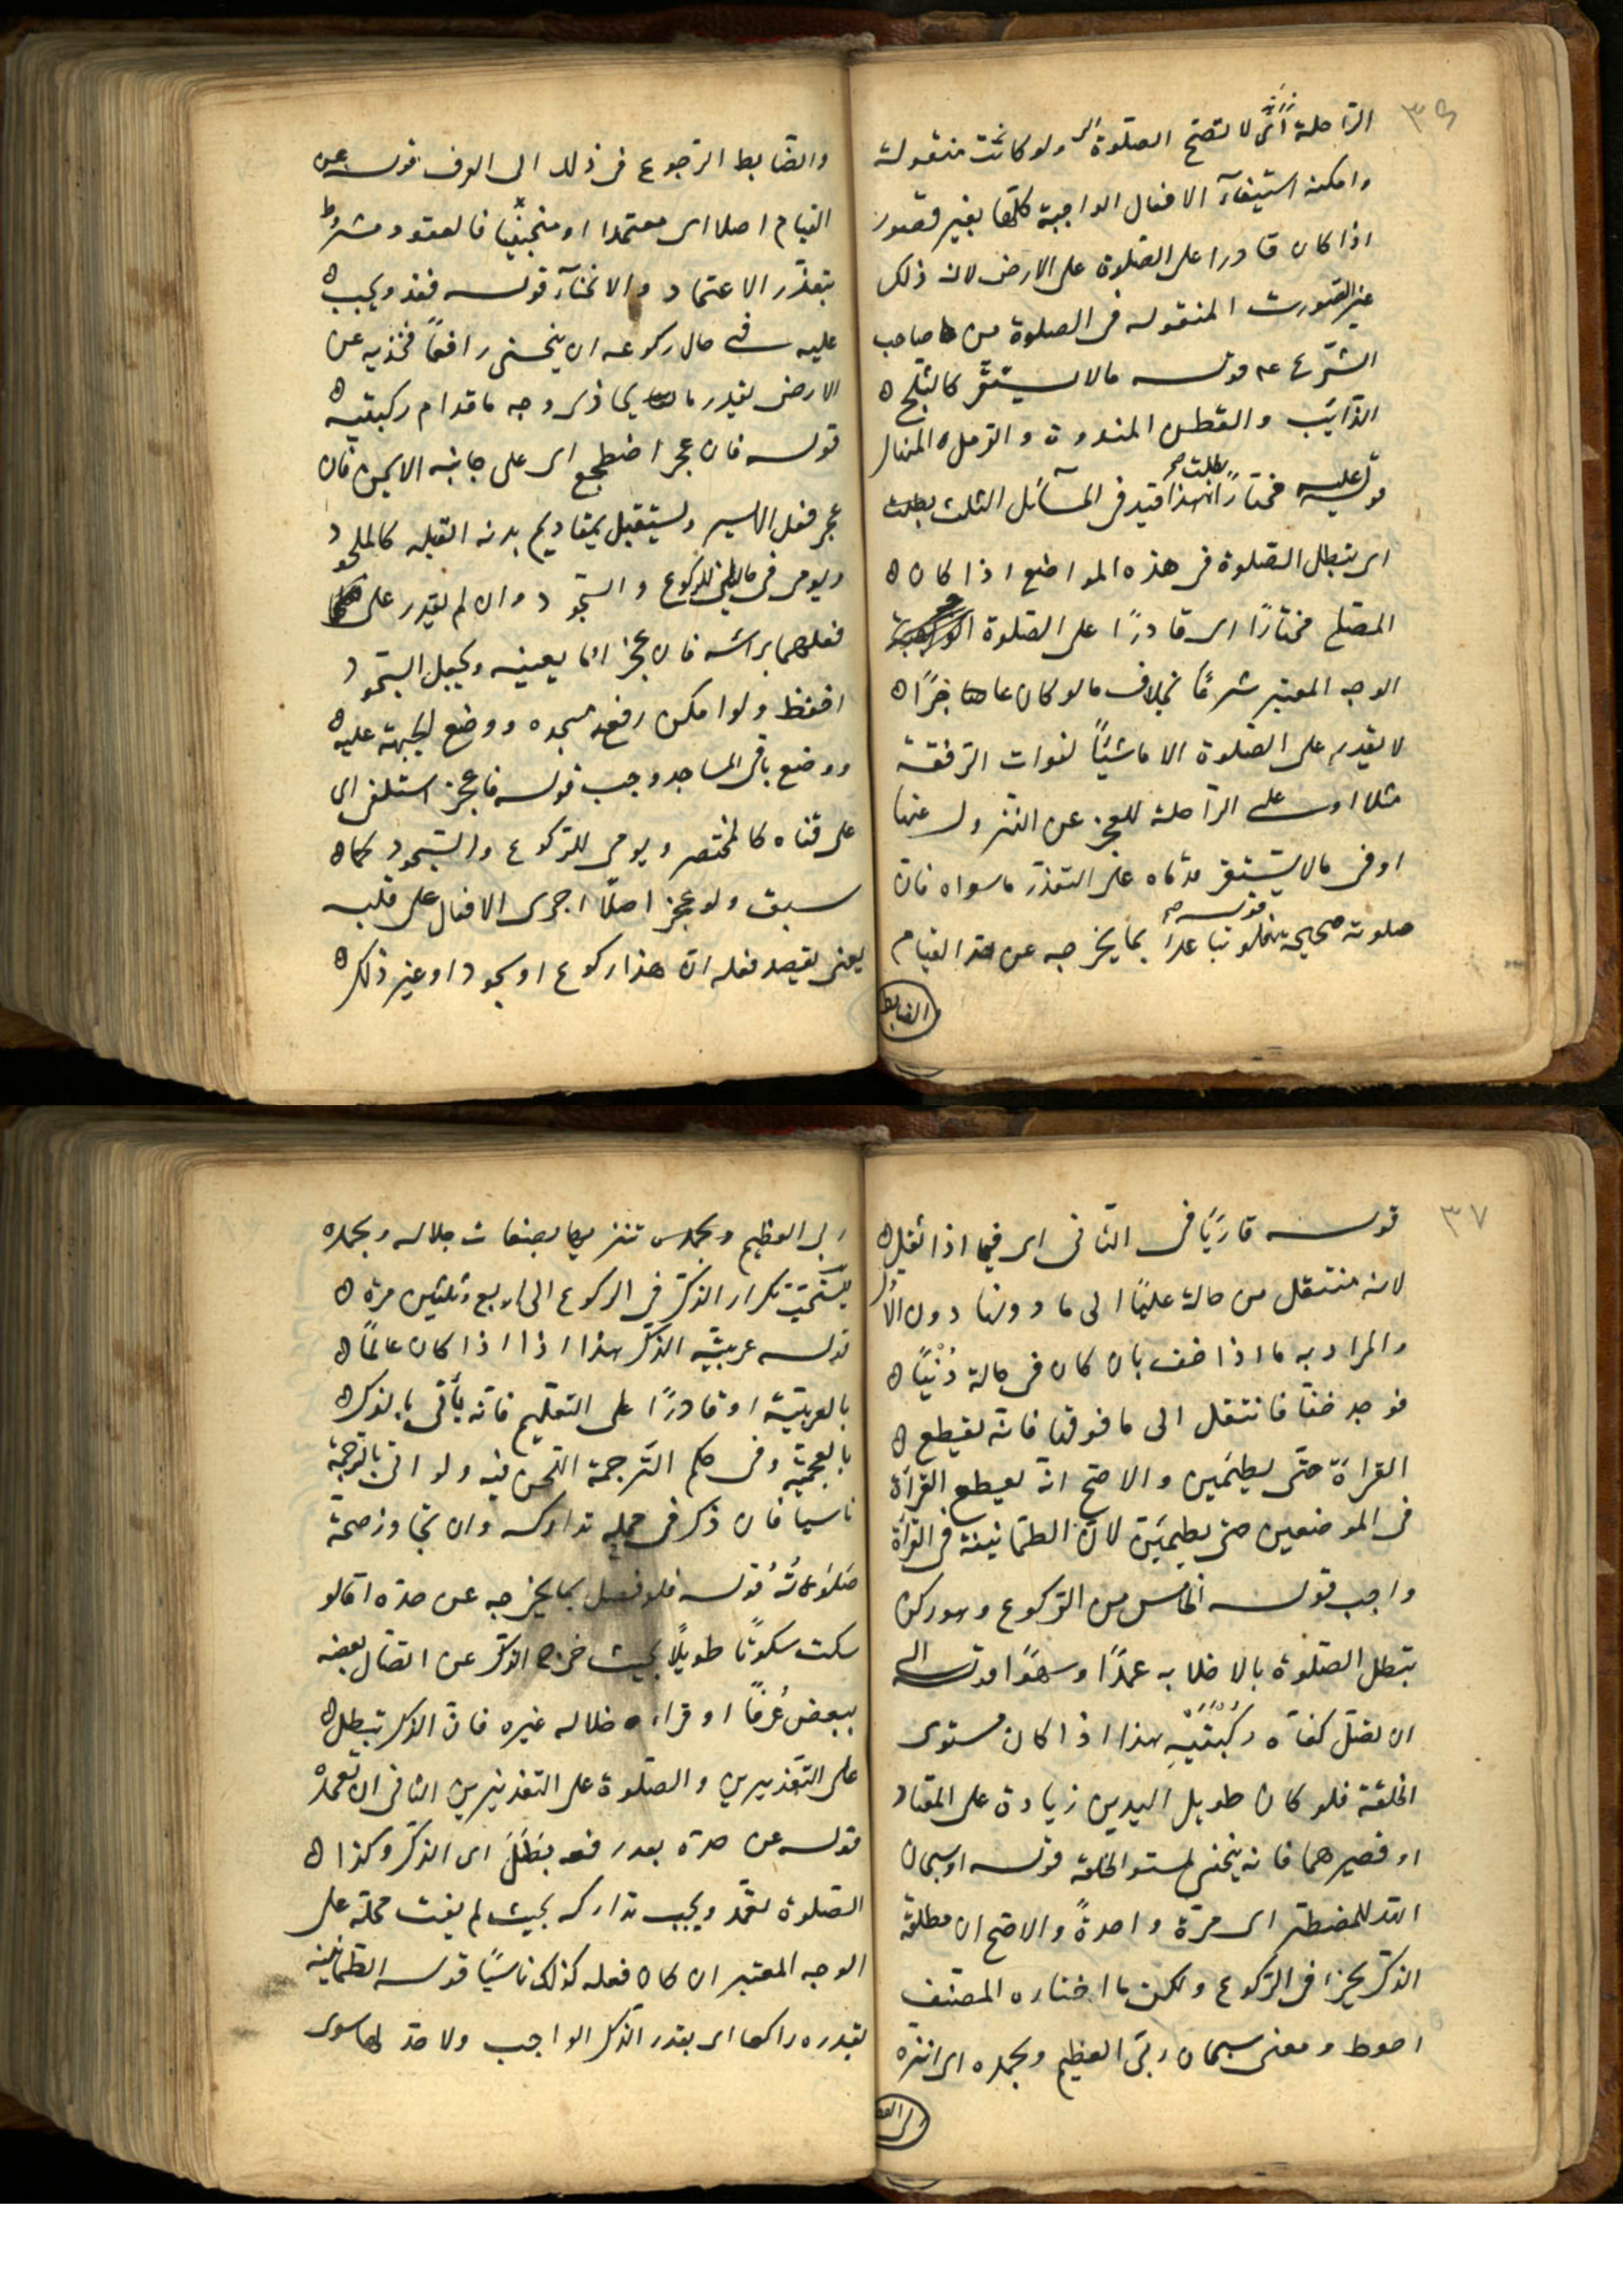 ٣٦
الرّاحلة أي لا تصحّ الصّلوة ولو كانت منقولة
وامكنه استيفآء الافعال الواجبة كلّها بغير قصور
اذا كان قادرا على الصّلوة على الارض لان ذلك
غير الصورت المنقوله فى الصلوة من صاحب
الشّرع عم قوله مالا يستقرّ كالثلج
الذّآئب والقطن المندوف والرّمل المنهار
قوله مختارًا هذا قيد فى المسآئل الثلث بطلت
اى يبطل الصّلوة فى هذه المواضع اذا كان
المصلّى مختارًا اى قادرًا على الصّلوة
الوجه المعتبر شرعًا بخلاف مالو كان عاجزًا
لا يقدر على الصّلوة الا ماشيًا لفوات الرّفقة
مثلا او على الرّاحلة للعجز عن النّزول عنها
او فى مالا يستقرّ قدماه على التعذّر ماسواه فانّ
صلوته صحيحة قوله فلو تباعدا بما يخرجه عن حدّ القيام
الضابط
والضّابط الرّجوع فى ذلك الى العرف قوله عن
القيام اصلا اى معتمدا او منحنيًا فالعقود مشروط
بتعذّر الاعتماد والانحنآء قوله فقد ويجب
عليه فى حال ركوعه ان ينحنى رافعًا فخذيه عن
الارض بقدر ما يحاذى وجه ماقدام ركبتيه
قوله فان عجز اضطجع اى على جانبه الايمن فان
عجز فعلى الايسر ويستقبل بمقاديم بدنه القبله كالملحود
ويومى فى للركوع والسّجود وان لم يقدر على
فعلهما برأسه فان عجز اوما بعينيه ويجعل السّجود
اخفظ ولو امكن رفع مسجده ووضع الجبهة عليه
ووضع باقى المساجد وجب قوله فان عجز استلقى اى
على قفاه كالمختصر ويومى للرّكوع والسّجود كما
سبق ولو عجز اصلًا اجرى الافعال على قلبه
يعنى يقصد فعله انّ هذا ركوع او سجود او غير ذلك
٣٧
قوله قاريًا فى الثّانى اى فيما اذا ثقل
لانه منتقل من حالة عليًا الى ما دونها دون الاوّل
والمراد به ما اذا خف بان كان فى حالة دُنْيًا
فوجد خفّا فانتقل الى مافوقها فانّه يقطع
القراءة حتّى يطمئن والاصحّ انّه يقطع القرآءة
فى الموضعين حتى يطمئن لانّ الطمانينة فى القرآءة
واجب قوله الخامس من الرّكوع وهو ركن
تبطل الصّلوة بالاخلا به عمدًا وسهوًا قوله الى
ان يصل كفّاه ركبتيه هذا اذا كان مستوى
الخلقة فلو كان طويل اليدين زيادة على المعتاد
او قصيرهما فانه ينحنى لمستو الخلقة قوله او سبحان
اللّه للمضطر اى مرّة واحدةً والاصحّ ان مطلقة
الذّكر يجزا فى الرّكوع ولكن ما اختاره المصنّف
احوط ومعنى سبحان ربّى العظيم وبحمده اى انزه
ربى العظيم وبحمده تنزيها بصفات جلاله وبحمده
يستحبّ تكرار الذّكر فى الركوع الى اربع وثلثين مرة
قوله عربيّة الذّكر هذا اذا اذا كان عالمًا
بالعربيّة او قادرًا على التعلّيم فانّه يأتى بالذكر
بالعجميّة وفى حكم التّرجمة اللّحن فيه ولو اتى بالترجمة
ناسيا فان ذكر فى محلّه تداركه وان تجاوز صحّة
صَلوتهُ قوله فلو فصل بما يخرجه عن حدّه اى لو
سكت سكوتًا طويلًا بحيث خرج الذّكر عن اتصال بعضه
ببعض عُرفًا او قراء خلاله غيره فان الذكر تبطل
على التّقديرين والصّلوة على التقديرين الثانى ان تعمده
قوله عن حدّه بعد رفعه بَطَلَ اى الذّكر وكذا
الصّلوة تعمّد ويجب تداركه بحيث لم يفت محلّه على
الوجه المعتبر ان كان فعله كذلك ناسيًا قوله الطّمانينه
بقدره راكعا اى بقدر الذّكر الواجب ولا حدّ لها سوى